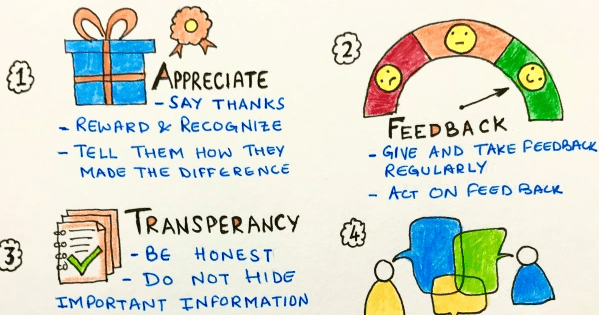 1
APPRECIATE
- SAY THANKS
- REWARD & RECOGNIZE
- TELL THEM HOW THEY
MADE THE DIFFERENCE
2
FEEDBACK
- GIVE AND TAKE FEEDBACK
REGULARLY
- ACT ON FEEDBACK
3
TRANSPERANCY
- BE HONEST
- DO NOT HIDE
IMPORTANT INFORMATION
4